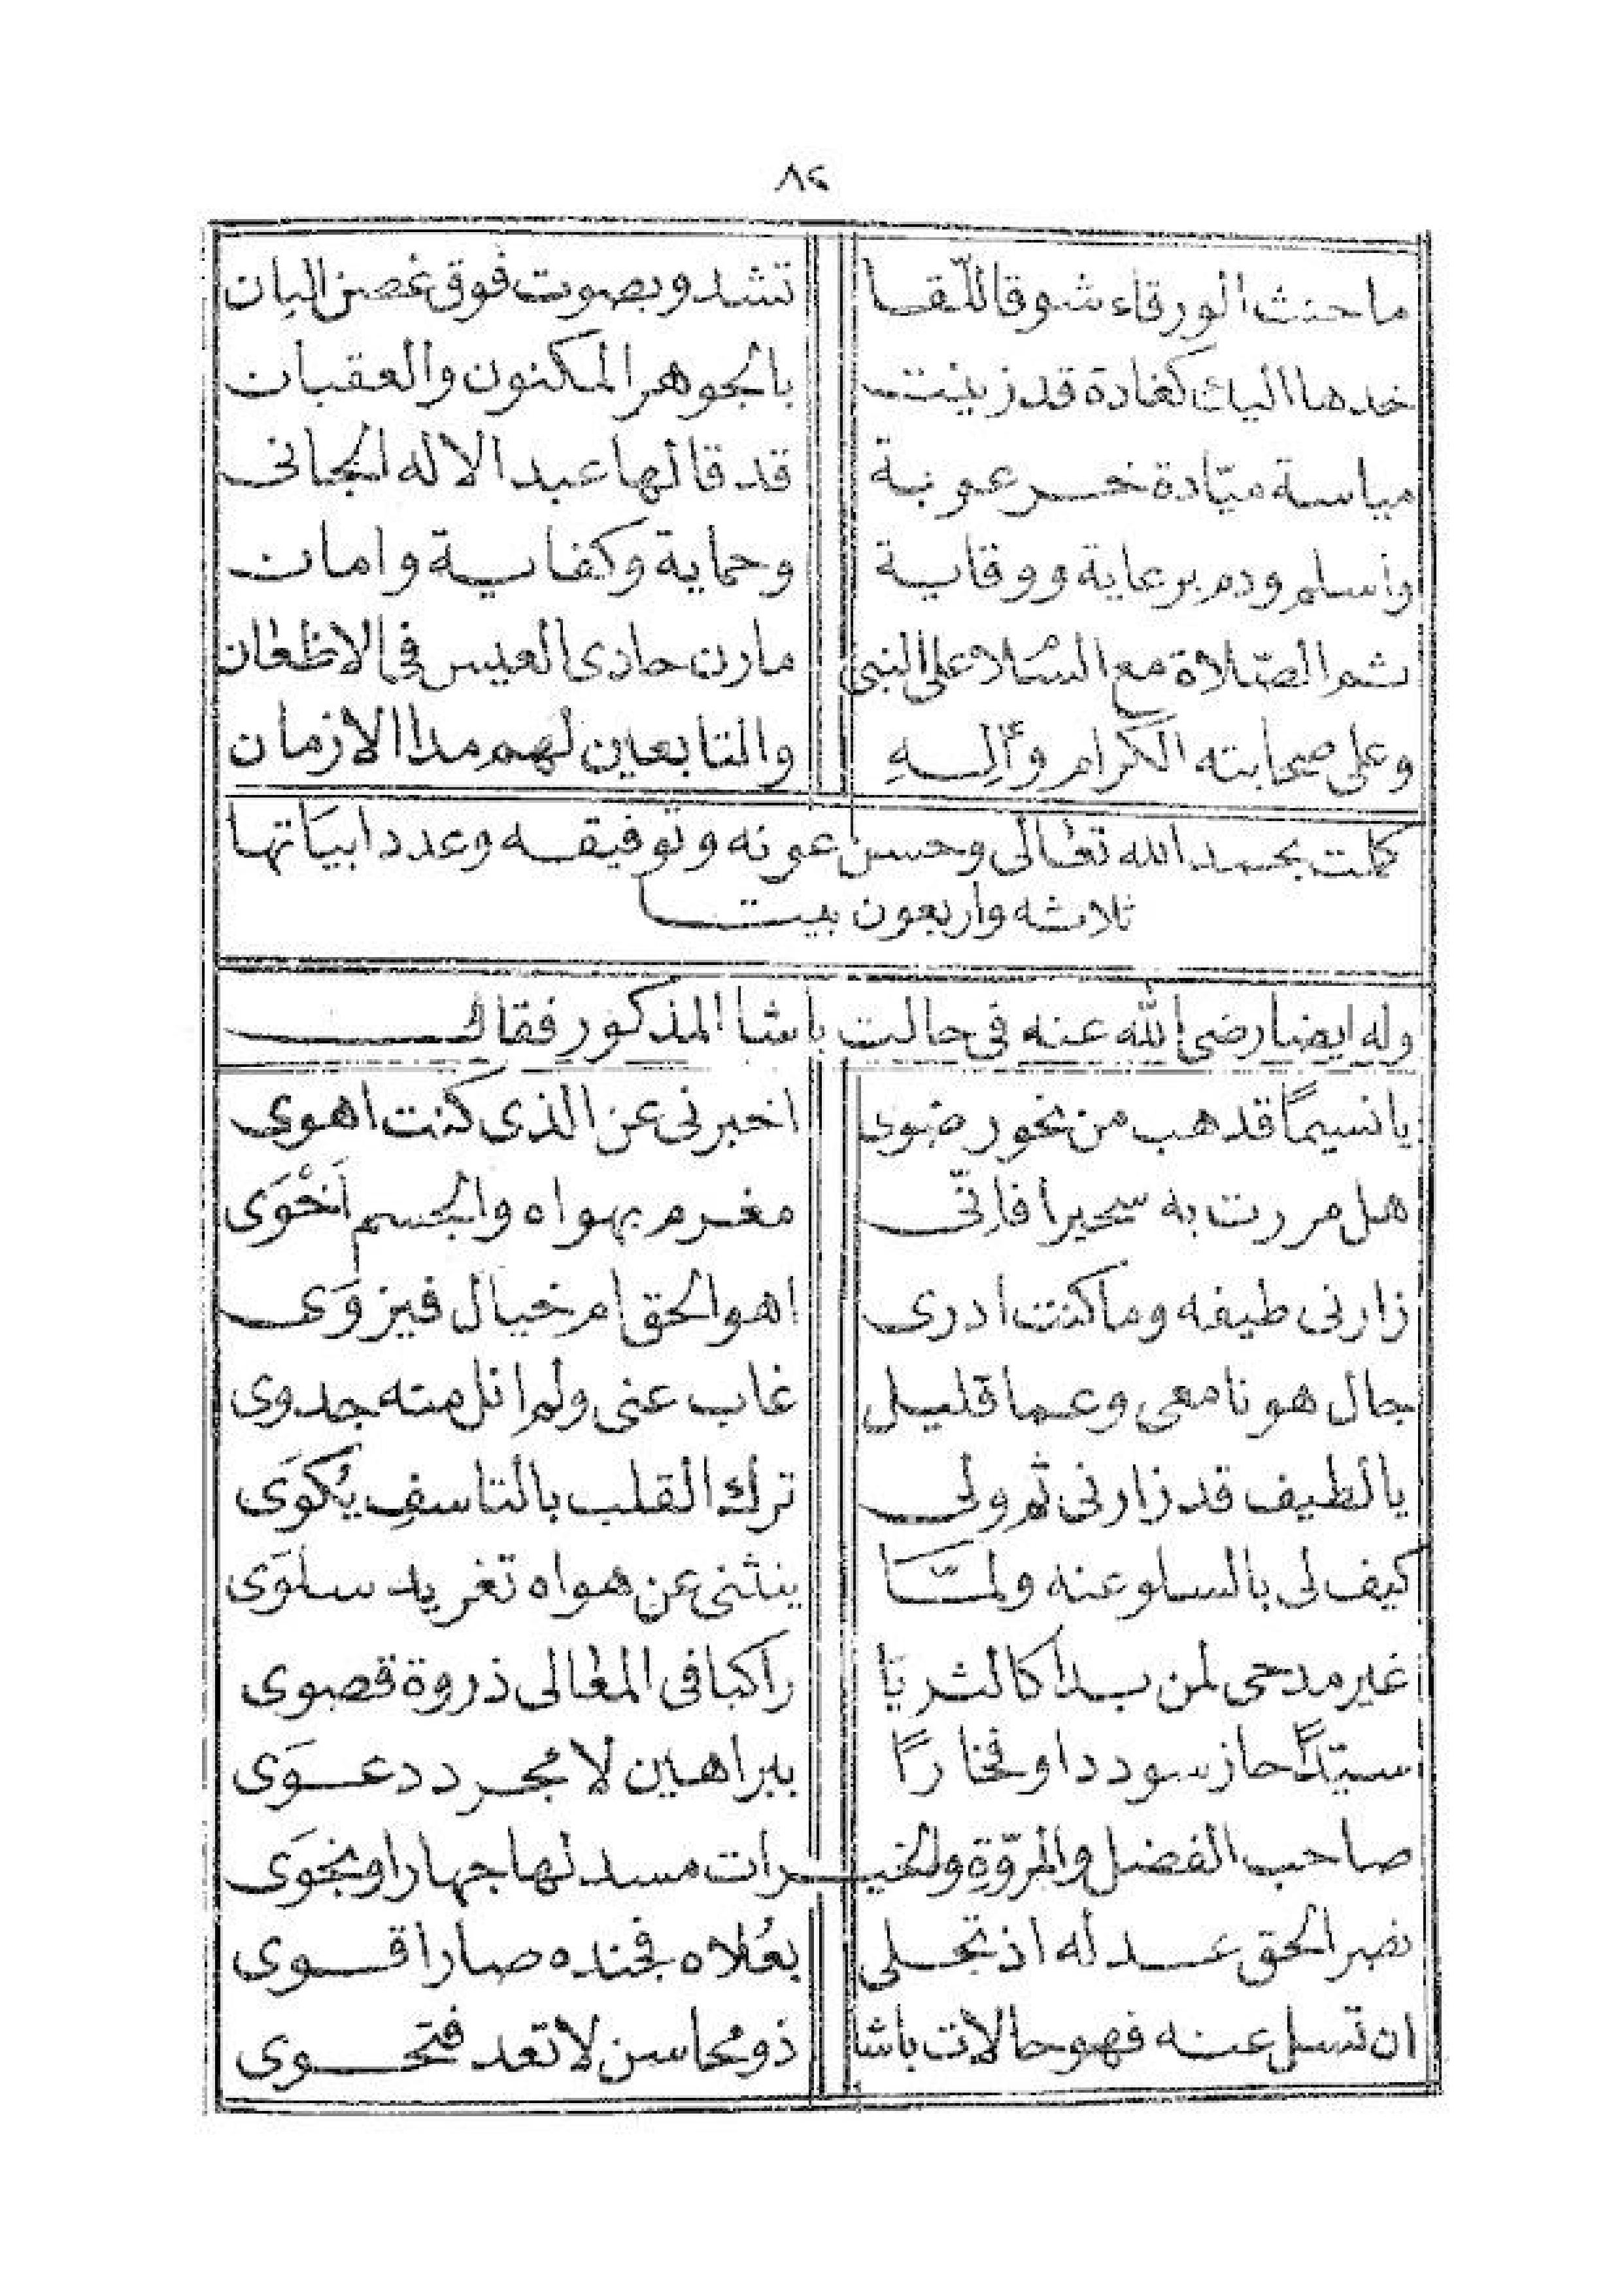 ٨٢
ما حنت الورقاء شوقا للّقا تشدو بصوت فوق غصن البان
خدها اليك كغادة قد زينت بالجوهر المكنون والعقبان
مياسة ميّادة خرعوبة قد قالها عبد الاله الجانى
وأسلم ودم برعاية ووقاية وحماية وكفاية وامان
ثم الصّلاة مع السّلام على النبى مارن حادى العيس فى الاظعان
وعلى صحابته الكرام وألِهِ والتابعين لهم مدا الازمان
كملت بحمد الله تعالى وحسن عونه وتوفيقه وعدد ابياتها
ثلاثه واربعون بيتا
وله ايضا رضى الله عنه فى حالت باشا المذكور فقال
يا نسيمًا قد هب من نحو رضوى اخبرنى عن الذى كنت اهوى
هل مررت به سحيرا فاِنّى مغرم بهواه والجسم اَخْوَى
زارنى طيفه وما كنت ادرى اهو الحق ام خيال فيزوَى
بحال هونا معى وعما قليل غاب عنى ولم انل منه جدوى
يا لطيف قد زارنى ثم ولى ترك القلب بالتاسفِ يُكوَى
كيف لى بالسلو عنه ولمّا ينثنى عن هواه تغريد سلوَى
غير مدحى لمن بدا كالثريّا راكبا فى المعالى ذروة قصوى
سيّدًا حاز سوددا وفخارًا ببراهين لا مجرد دعوَى
صاحب الفضل والمروّةِ والخيرات مسد لها جهارا ونجوَى
نصر الحق عدله اذ تجلى بعُلاه فجنده صار اقوى
ان تسل عنه فهو حالات باشا ذو محاسن لا تعد فتحوى